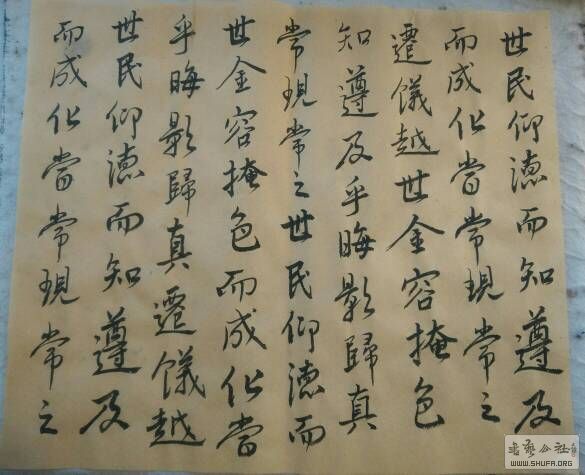 世民仰德而知遵及
而成化當常現常之
遷儀越世金容掩色
知遵及乎晦影歸真
常現常之世民仰德而
世金容掩色而成化當
乎晦影歸真遷儀越
世民仰德而知遵及
而成化當常現常之
書藝公社
WWW.SHUFA.ORG